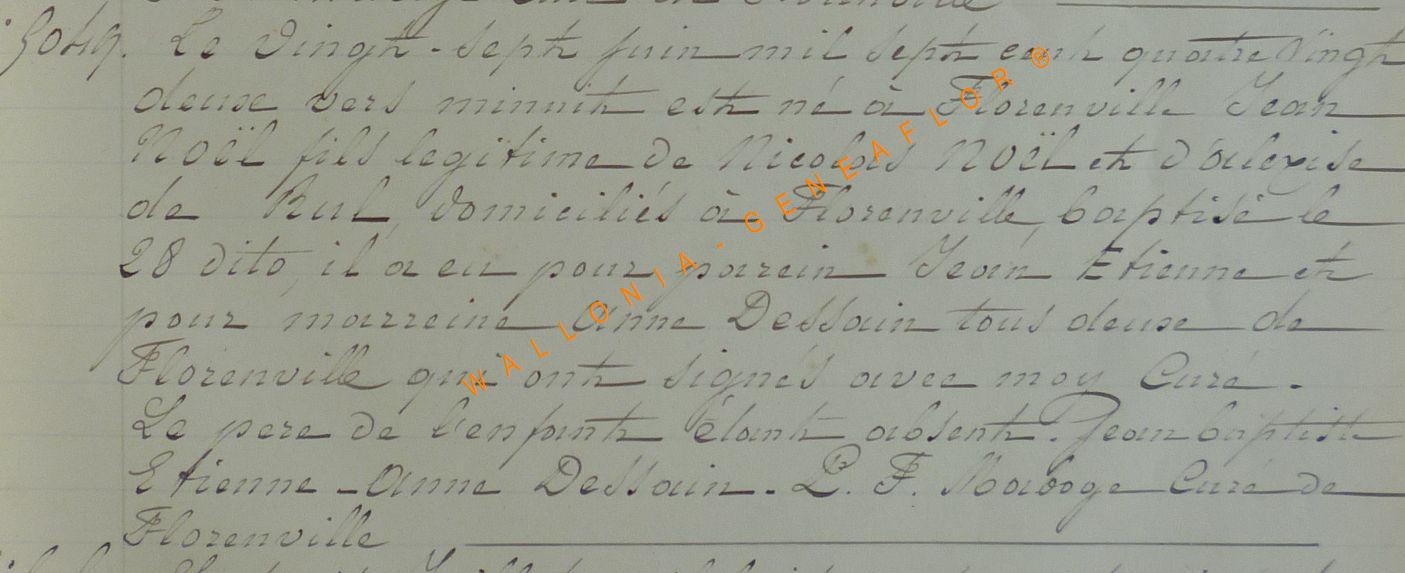 Le vingt-sept juin mil sept cent quatre vingt
deux vers minuit est né à Florenville Jean
Noël fils legitime de Nicolas Noël et d'alexise
de Bul, domiciliés à Florenville, baptisé le
28 dito, il a eu pour parein Jean Etienne et
pour marreine Anne Dessain tous deux de
Florenville qui ont signés avec moy Curé.
Le pere de l'enfant étant absent. Jean baptiste
Etienne - Anne Dessain. P. F. Maboge Curé de
Florenville
WALLONIA-GENEAFLOR®